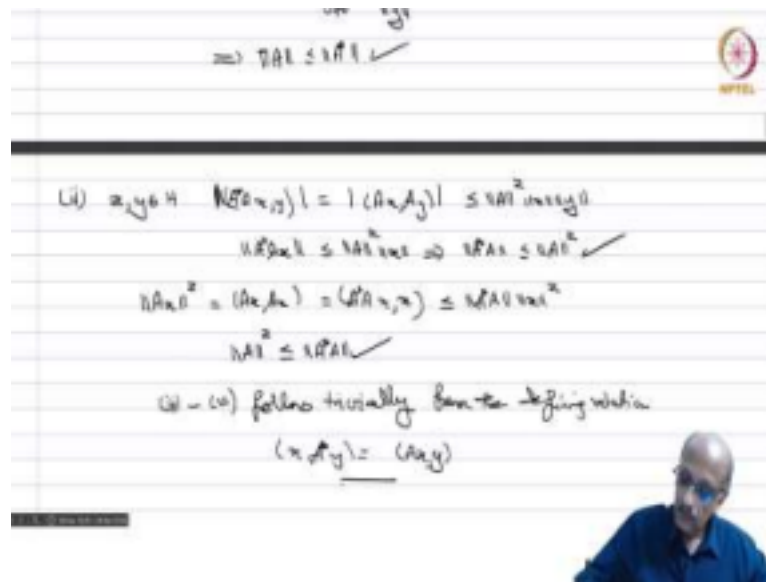 ⇒ ‖A‖ ≤ ‖A*‖ ✓
NPTEL
(ii) x,y∈H |(A*Ax,y)| = |(Ax,Ay)| ≤ ‖A‖²‖x‖‖y‖
‖A*Ax‖ ≤ ‖A‖²‖x‖ ⇒ ‖A*A‖ ≤ ‖A‖² ✓
‖Ax‖² = (Ax,Ax) = (A*Ax,x) ≤ ‖A*A‖‖x‖²
‖A‖² ≤ ‖A*A‖ ✓
follows trivially from the defining relation
(x,A*y) = (Ax,y)